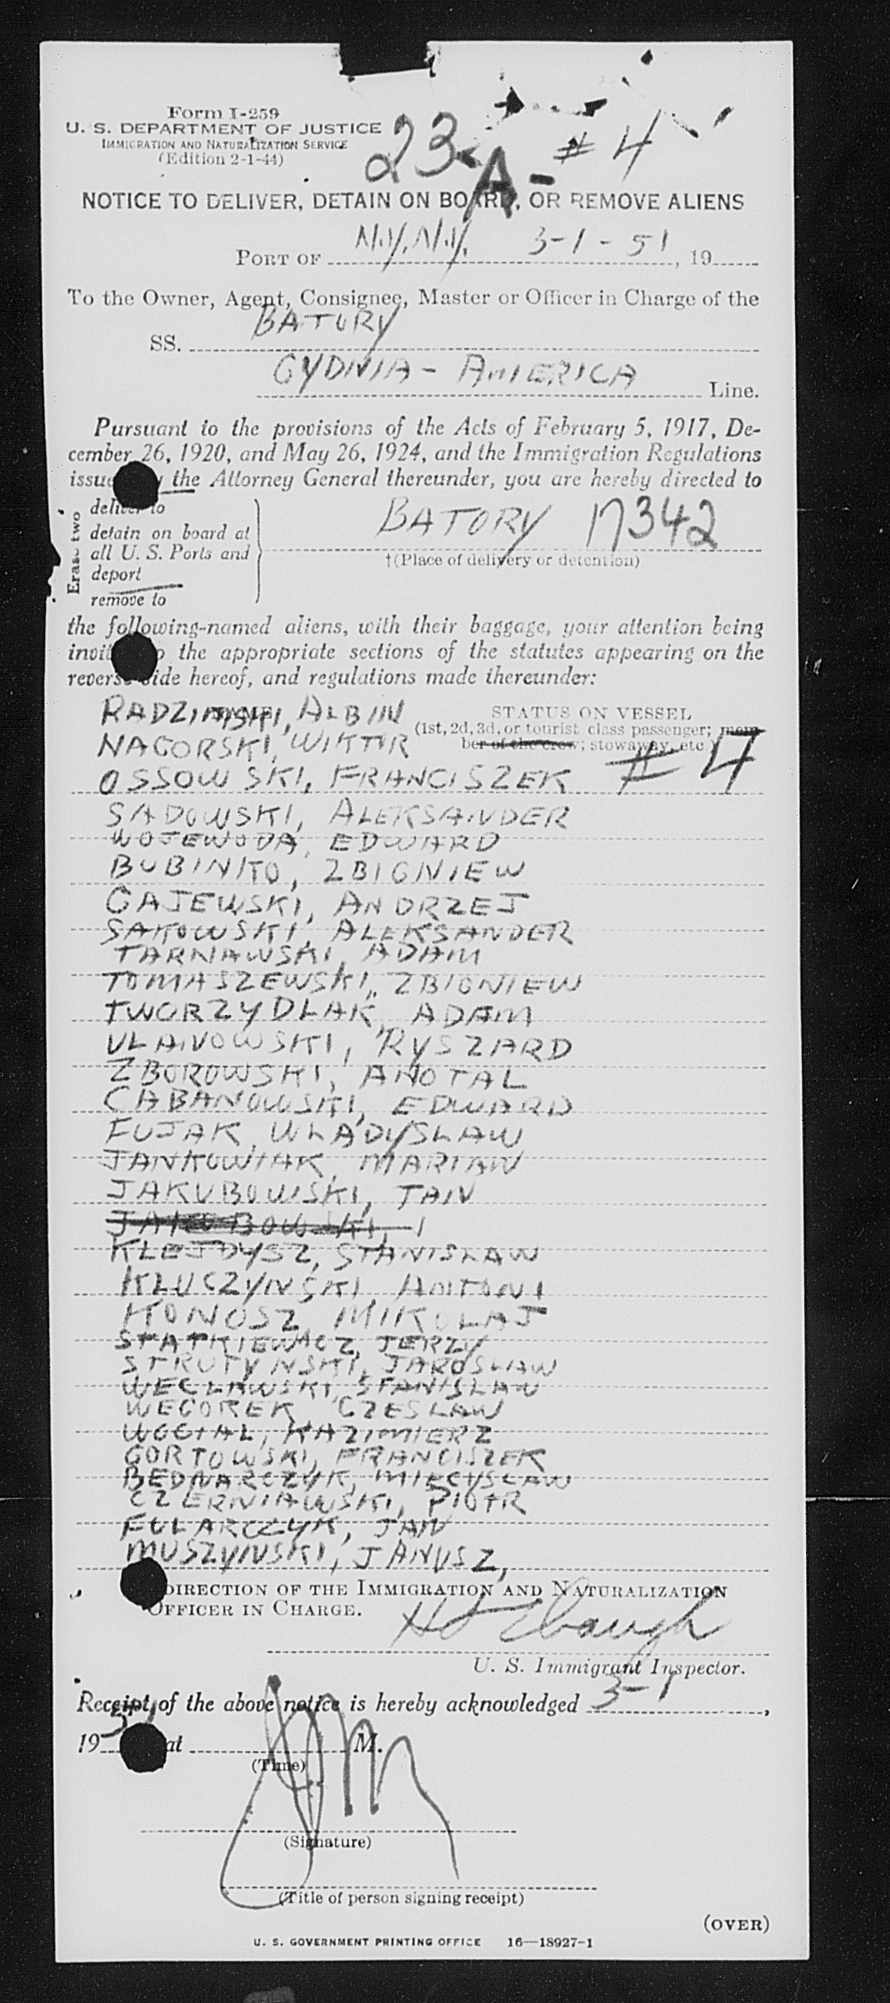 Form I-259
U. S. DEPARTMENT OF JUSTICE
IMMIGRATION AND NATURALIZATION SERVICE
(Edition 2-1-44)
23
A-
#4
NOTICE TO DELIVER, DETAIN ON BOARD, OR REMOVE ALIENS
PORT OF N.Y., N.Y. 3-1-51, 19
To the Owner, Agent, Consignee, Master or Officer in Charge of the
SS. BATORY
GYDNIA - AMERICA Line.
Pursuant to the provisions of the Acts of February 5, 1917, De-
cember 26, 1920, and May 26, 1924, and the Immigration Regulations
the Attorney General thereunder, you are hereby directed to
Erase two
deliver to
detain on board at
all U. S. Ports and
deport
remove to
BATORY 17342
†(Place of delivery or detention)
the following-named aliens, with their baggage, your attention being
the appropriate sections of the statutes appearing on the
reverse side hereof, and regulations made thereunder:
STATUS ON VESSEL
(1st, 2d, 3d, or tourist class passenger; mem-
ber of the crew; stowaway, etc.)
#4
RADZINSKI, ALBIN
NAGORSKI, WIKTOR
OSSOWSKI, FRANCISZEK
SADOWSKI, ALEKSANDER
WOJEWODA, EDWARD
BUBINKO, ZBIGNIEW
GAJEWSKI, ANDRZEJ
SAKOWSKI, ALEKSANDER
TARNAWSKI, ADAM
TOMASZEWSKI, ZBIGNIEW
TWORZYDLAK, ADAM
ULANOWSKI, RYSZARD
ZBOROWSKI, ANOTAL
CABANOWSKI, EDWARD
FUJAK, WLADYSLAW
JANKOWIAK, MARIAN
JAKUBOWSKI, JAN
JAKUBOWSKI, J
KLEJDYSZ, STANISLAW
KLUCZYNSKI, ANTONI
KONOSZ, MIKOLAJ
STATKIEWICZ, JERZY
STRUTYNSKI, JAROSLAW
WECLAWSKI, STANISLAW
WEGOREK, CZESLAW
KAZIMIERZ
GORTOWSKI, FRANCISZEK
BEDNARCZYK, MIECYSLAW
CZERNIAWSKI, PIOTR
FULARCZYK, JAN
MUSZYNSKI, JANUSZ,
DIRECTION OF THE IMMIGRATION AND NATURALIZATION
OFFICER IN CHARGE.
U. S. Immigrant Inspector.
Receipt of the above notice is hereby acknowledged 3-1,
1951 at M.
(Time)
(Signature)
(Title of person signing receipt)
(OVER)
U. S. GOVERNMENT PRINTING OFFICE 16—18927-1